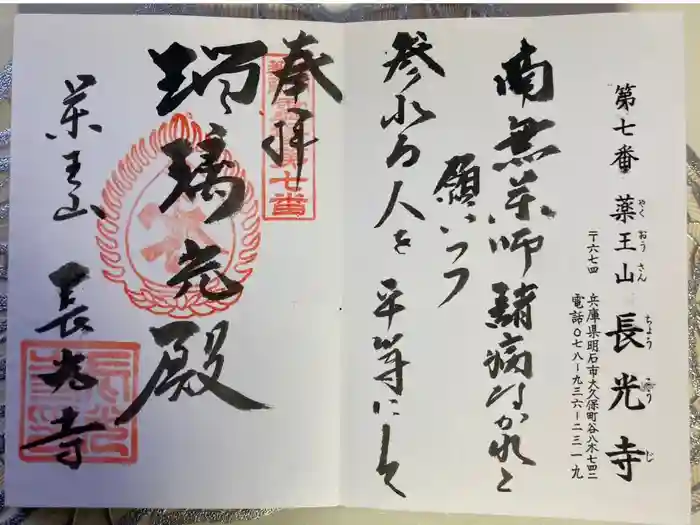 第七番 薬王山 長光寺
やくおうさん ちょうこうじ
〒六七四 兵庫県明石市大久保町谷八木七四二
電話〇七八ー九三六ー二三一九
南無薬師諸病なかれと
願いつつ
参れる人を平等にして
奉拝
第七番
瑠璃光殿
薬王山 長光寺